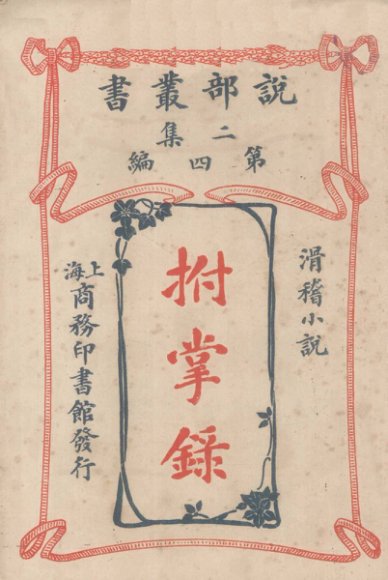 說部叢書
二集
第四編
滑稽小說
拊掌錄
上海商務印書館發行